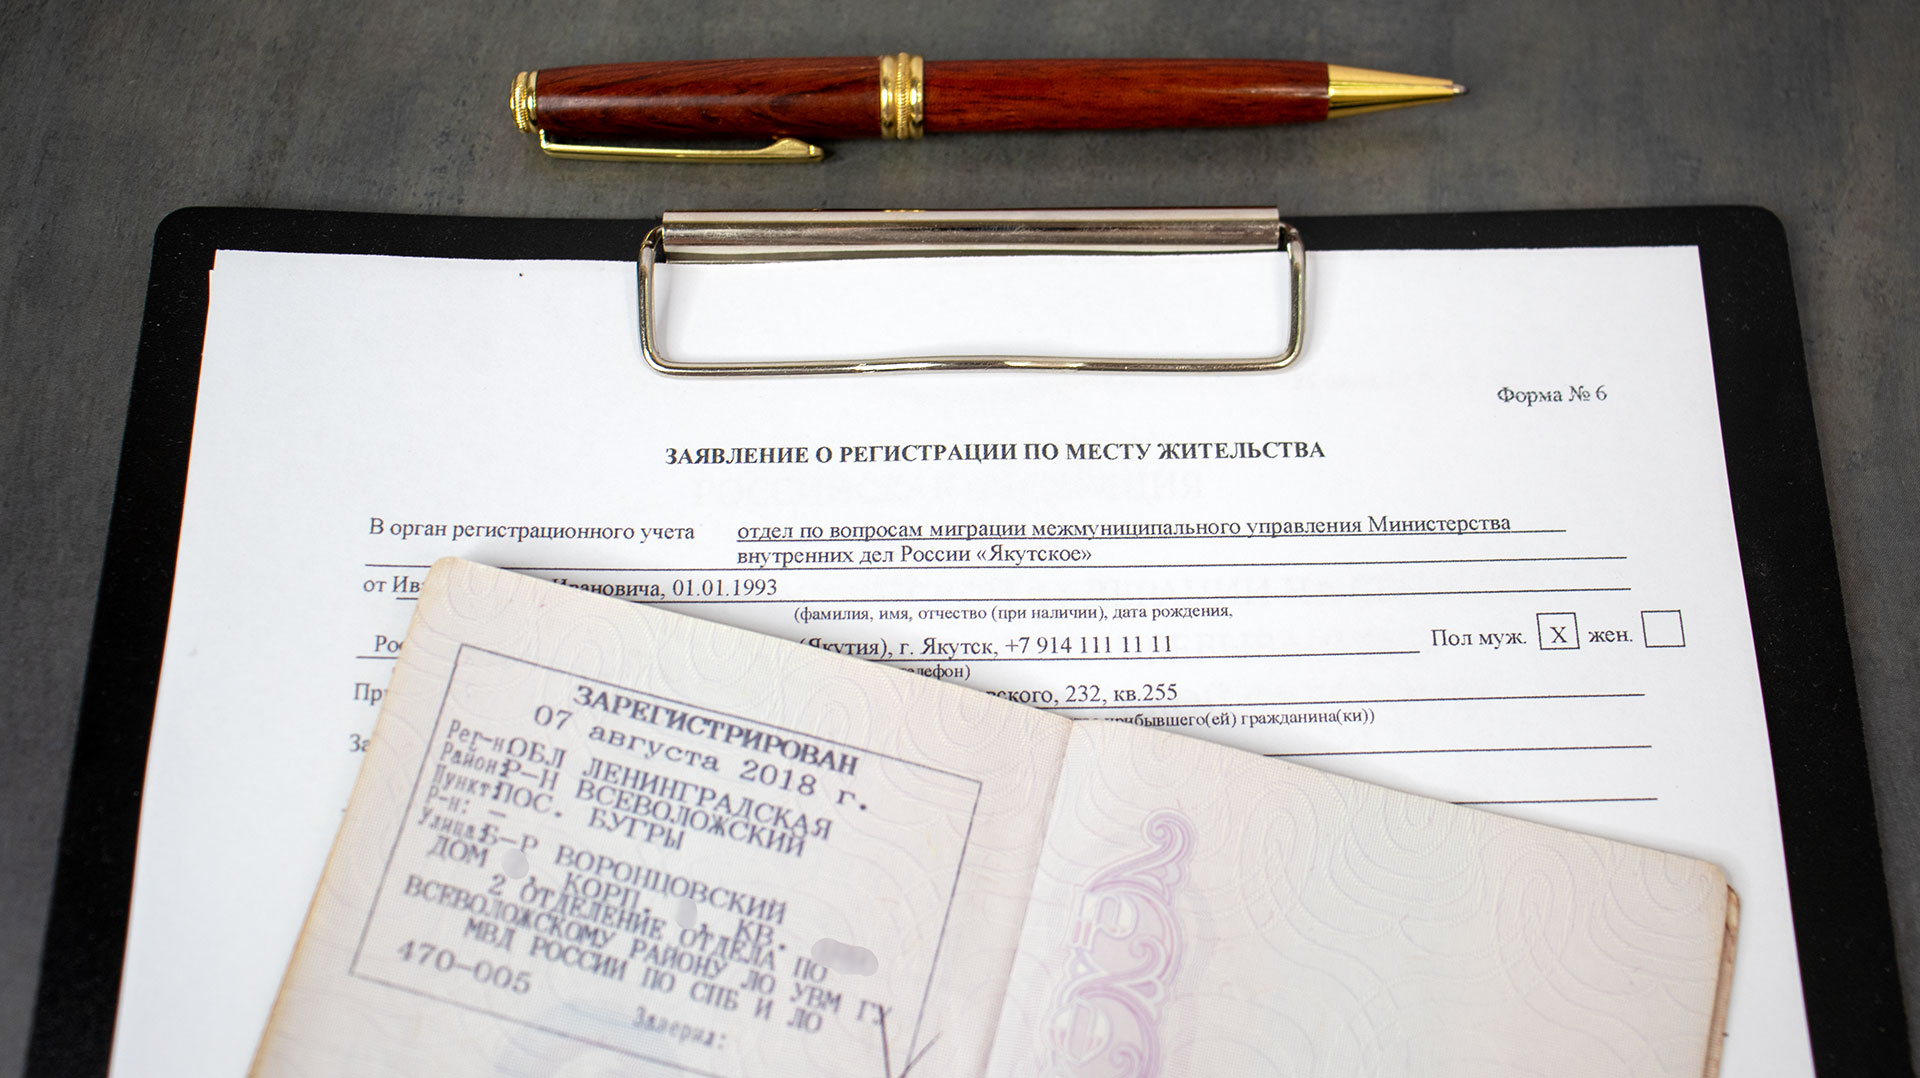 Форма № 6
ЗАЯВЛЕНИЕ О РЕГИСТРАЦИИ ПО МЕСТУ ЖИТЕЛЬСТВА
В орган регистрационного учета отдел по вопросам миграции межмуниципального управления Министерства
внутренних дел России «Якутское»
от Ив вановича, 01.01.1993
(фамилия, имя, отчество (при наличии), дата рождения,
Рос (Якутия), г. Якутск, +7 914 111 11 11 Пол муж. X жен.
лефон)
вского, 232, кв.255
Пр прибывшего(ей) гражданина(ки))
За
ЗАРЕГИСТРИРОВАН
07 августа 2018 г.
Рег-н: ОБЛ ЛЕНИНГРАДСКАЯ
Район: Р-Н ВСЕВОЛОЖСКИЙ
Пункт: ПОС. БУГРЫ
Р-н: —
Улица: Б-Р ВОРОНЦОВСКИЙ
ДОМ , КОРП. , КВ.
2 ОТДЕЛЕНИЕ ОТДЕЛА ПО
ВСЕВОЛОЖСКОМУ РАЙОНУ ЛО УВМ ГУ
МВД РОССИИ ПО СПБ И ЛО
470-005
Заверил: